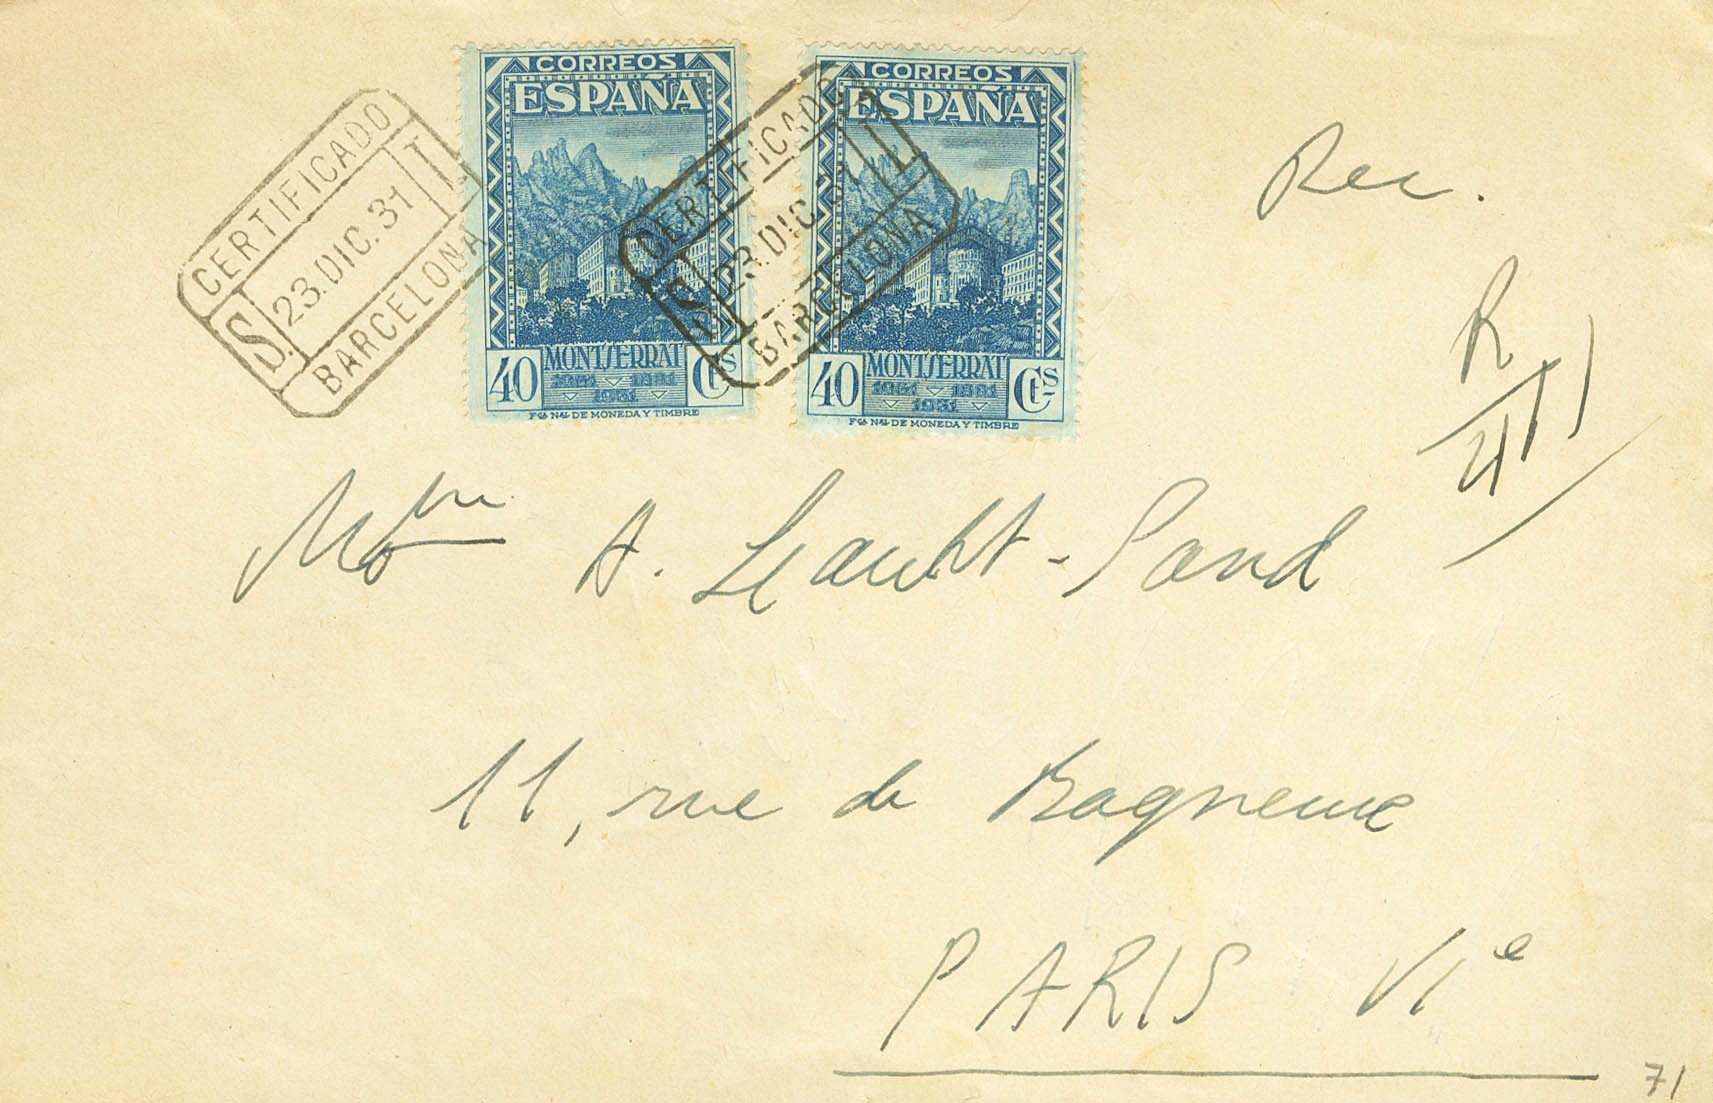 CORREOS
ESPAÑA
40 MONTSERRAT Cts
1881 1931
Fca Nal DE MONEDA Y TIMBRE
CORREOS
ESPAÑA
40 MONTSERRAT Cts
1881 1931
Fca Nal DE MONEDA Y TIMBRE
CERTIFICADO
S. 23.DIC.31
BARCELONA
CERTIFICADO
S. 23.DIC.31
BARCELONA
Rec.
R
A.
11, rue de Bagneux
PARIS VIe
71